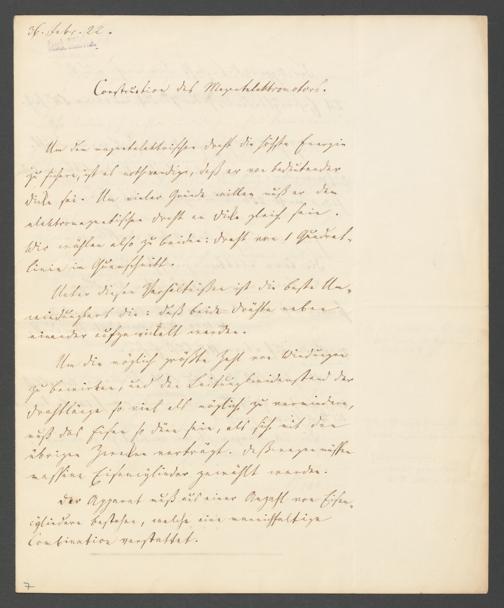 Febr. 22.
Construction des Magnetelektromotors.
Um dem magnetelektrischen Draht die höchste Energie
zu sichern, ist es nothwendig, daß er von bedeutender
Dicke sei. Um vieler Gründe willen muß er dem
elektromagnetischen Draht an Dicke gleich sein.
Wir wählen also zu beiden: Draht von 1 Quadrat-
linie im Querschnitt.
Unter diesen Verhältnißen ist die beste Um-
windungsart die: daß beide Drähte neben
einander aufgewickelt werden.
Um die möglich größte Zahl von Windungen
zu bewirken, und den Leitungswiderstand der
Drahtlänge so viel als möglich zu vermindern,
muß das Eisen so dünn sein, als sich mit den
übrigen Zwecken verträgt. Deßwegen müssen
massive Eisencylinder gewählt werden.
Der Apparat muß aus einer Anzahl von Eisen-
cylindern bestehen, welche eine mannichfaltige
Combination verstattet.
7